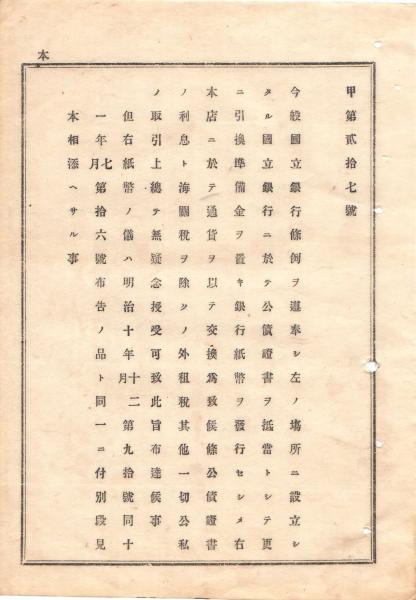 本
甲第貳拾七號
今般國立銀行條例ヲ遵奉シ左ノ塲所ニ設立シ
タル國立銀行ニ於テ公債證書ヲ抵當トシテ更
ニ引換凖備金ヲ置キ銀行紙幣ヲ發行セシメ右
本店ニ於テ通貨ヲ以テ交換爲致候條公債證書
ノ利息ト海關稅ヲ除クノ外租稅其他一切公私
ノ取引上總テ無疑念授受可致此旨布達候事
但右紙幣ノ儀ハ明治十年十二月第九拾號同十
一年七月第拾六號布告ノ品ト同一ニ付別段見
本相添ヘサル事